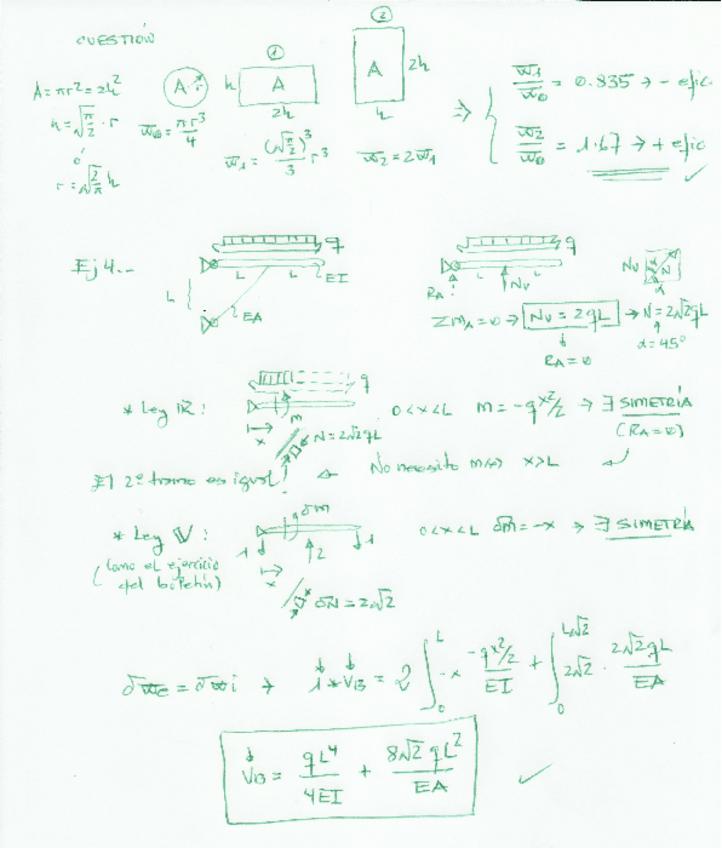 CUESTIÓN
A = πr² = 2h²
h = √(π/2) · r
ó
r = √(2/π) h
A r
W₀ = πr³/4
① h A 2h
W₁ = (√(π/2))³/3 r³
② A 2h h
W₂ = 2W₁
⇒ { W₁/W₀ = 0.835 → - efic.
W₂/W₀ = 1.67 → + efic ✓
Ej 4.-
q L L EI L EA
q L L RA? Nv
Nv N α
ΣMA = 0 ⇒ Nv = 2qL → N = 2√2qL
α = 45º
RA = 0
* Ley R:
q m x N = 2√2qL
0<x<L m = -q x²/2 → ∃ SIMETRÍA
(RA = 0)
El 2º tramo es igual!
No necesito m(x) x>L
* Ley V:
(como el ejercicio
del boletín)
δm 1 2 1 x
δN = 2√2
0<x<L δm = -x → ∃ SIMETRÍA
δWe = δWi → 1*VB = 2 ∫₀ᴸ -x · (-qx²/2)/EI + ∫₀^(L√2) 2√2 · 2√2qL/EA
VB = qL⁴/4EI + 8√2qL²/EA ✓